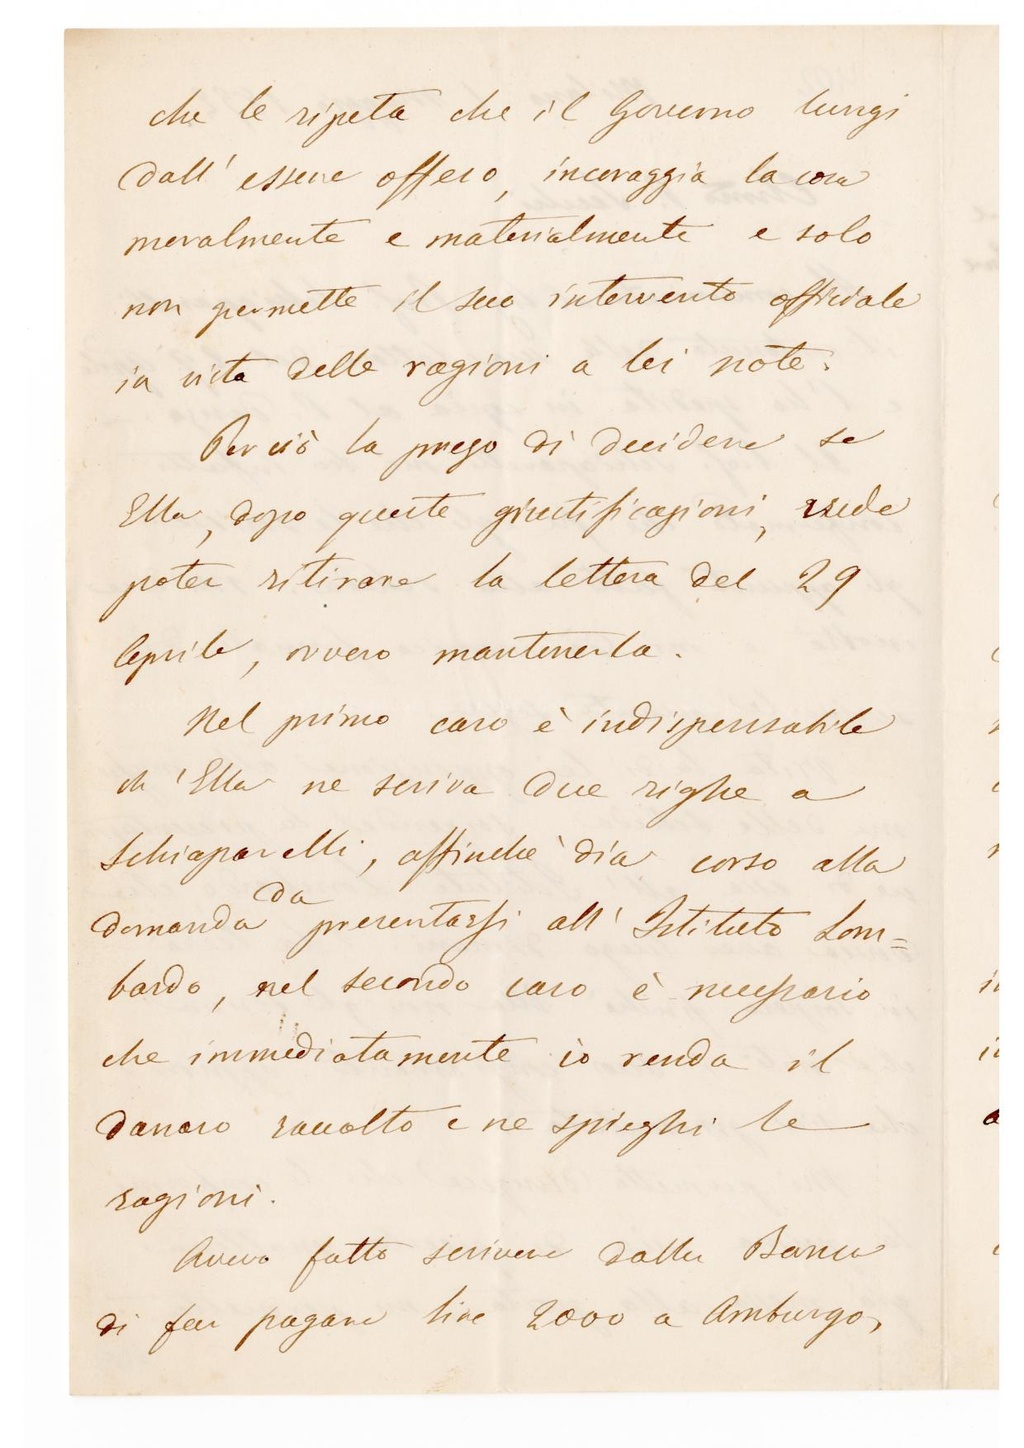 che le ripeta che il Governo lungi
dall' essere offeso, incoraggia la cosa
moralmente e materialmente e solo
non permette il suo intervento officiale
in vista delle ragioni a lei note.
Perciò la prego di decidere se
Ella, dopo queste giustificazioni, crede
poter ritirare la lettera del 29
Aprile, ovvero mantenerla.
Nel primo caso è indispensabile
ch' Ella ne scriva due righe a
Schiaparelli, affinchè dia corso alla
domanda da presentarsi all' Istituto Lom=
bardo, nel secondo caso è necessario
che immediatamente io renda il
danaro raccolto e ne spieghi le
ragioni.
Avevo fatto scrivere dalla Banca
di far pagare lire 2000 a Amburgo,